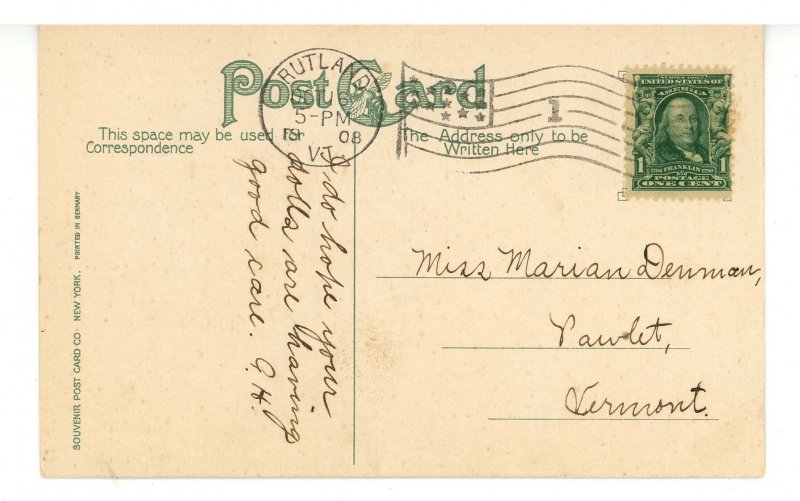 Post Card
RUTLAND
5-PM
08
VT.
1
This space may be used for
Correspondence
The Address only to be
Written Here
UNITED STATES OF
AMERICA
1
1
FRANKLIN
POSTAGE
ONE CENT
I do hope your
dolls are having
good care. G.H.
Miss Marian Denman,
Pawlet,
Vermont.
SOUVENIR POST CARD CO. NEW YORK. PRINTED IN GERMANY